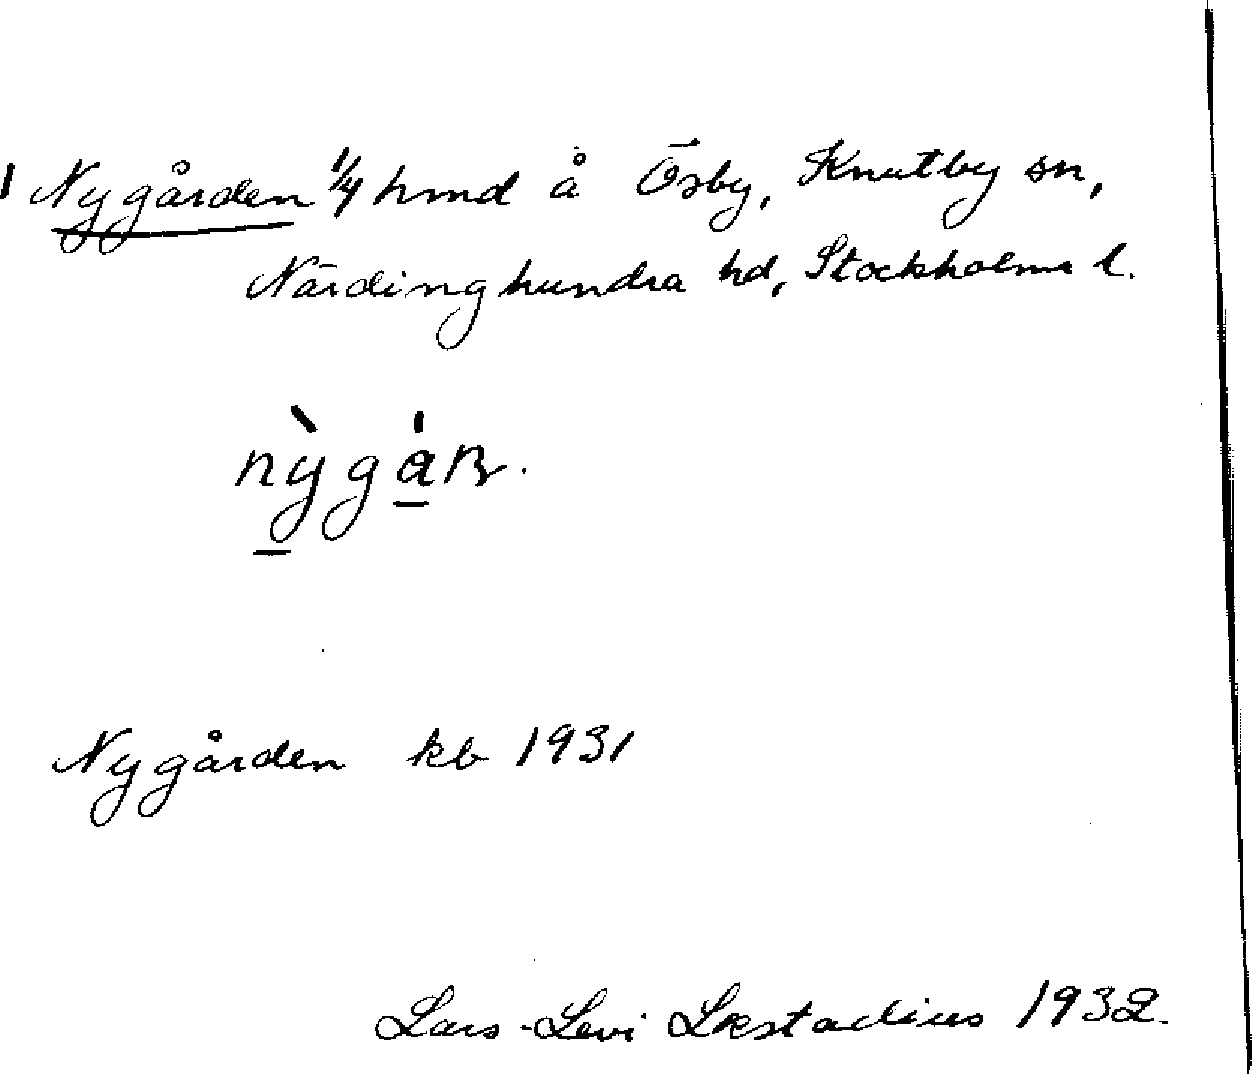 Nygården 1/4 hmd å Ösby, Knutby sn,
Närdinghundra hd, Stockholms l.
Nygården kb 1931
Lars-Levi Læstadius 1932.